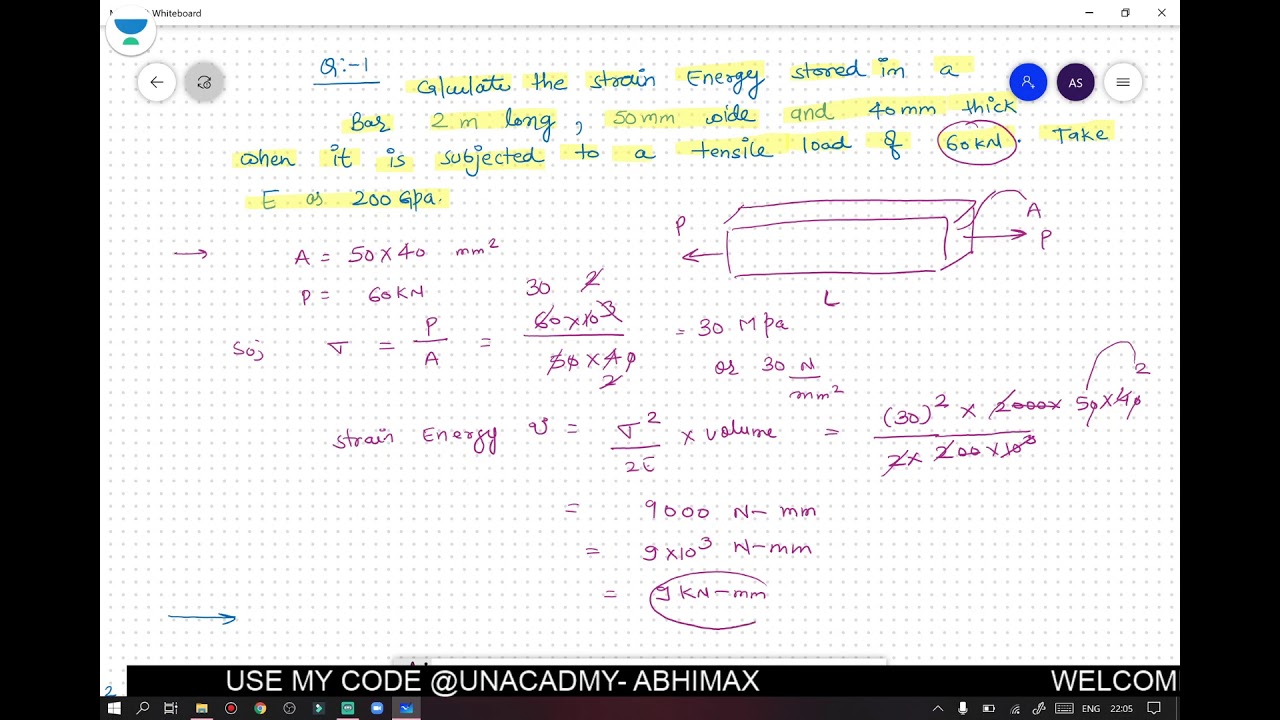 Whiteboard
Q:-1 Calculate the strain Energy stored in a
Bar 2 m long, 50mm wide and 40mm thick
when it is subjected to a tensile load of 60kN. Take
E as 200 Gpa.
AS
A
P
P
L
A = 50×40 mm²
P = 60KN
So, σ = P/A = 60×10³/50×40 = 30 Mpa
30 2
2
or 30 N/mm²
strain Energy U = σ²/2E × volume = (30)² × 2000× 50×40/2× 200×10³
2
= 9000 N-mm
= 9×10³ N-mm
= 9 KN-mm
2
USE MY CODE @UNACADMY- ABHIMAX WELCOM
ENG 22:05